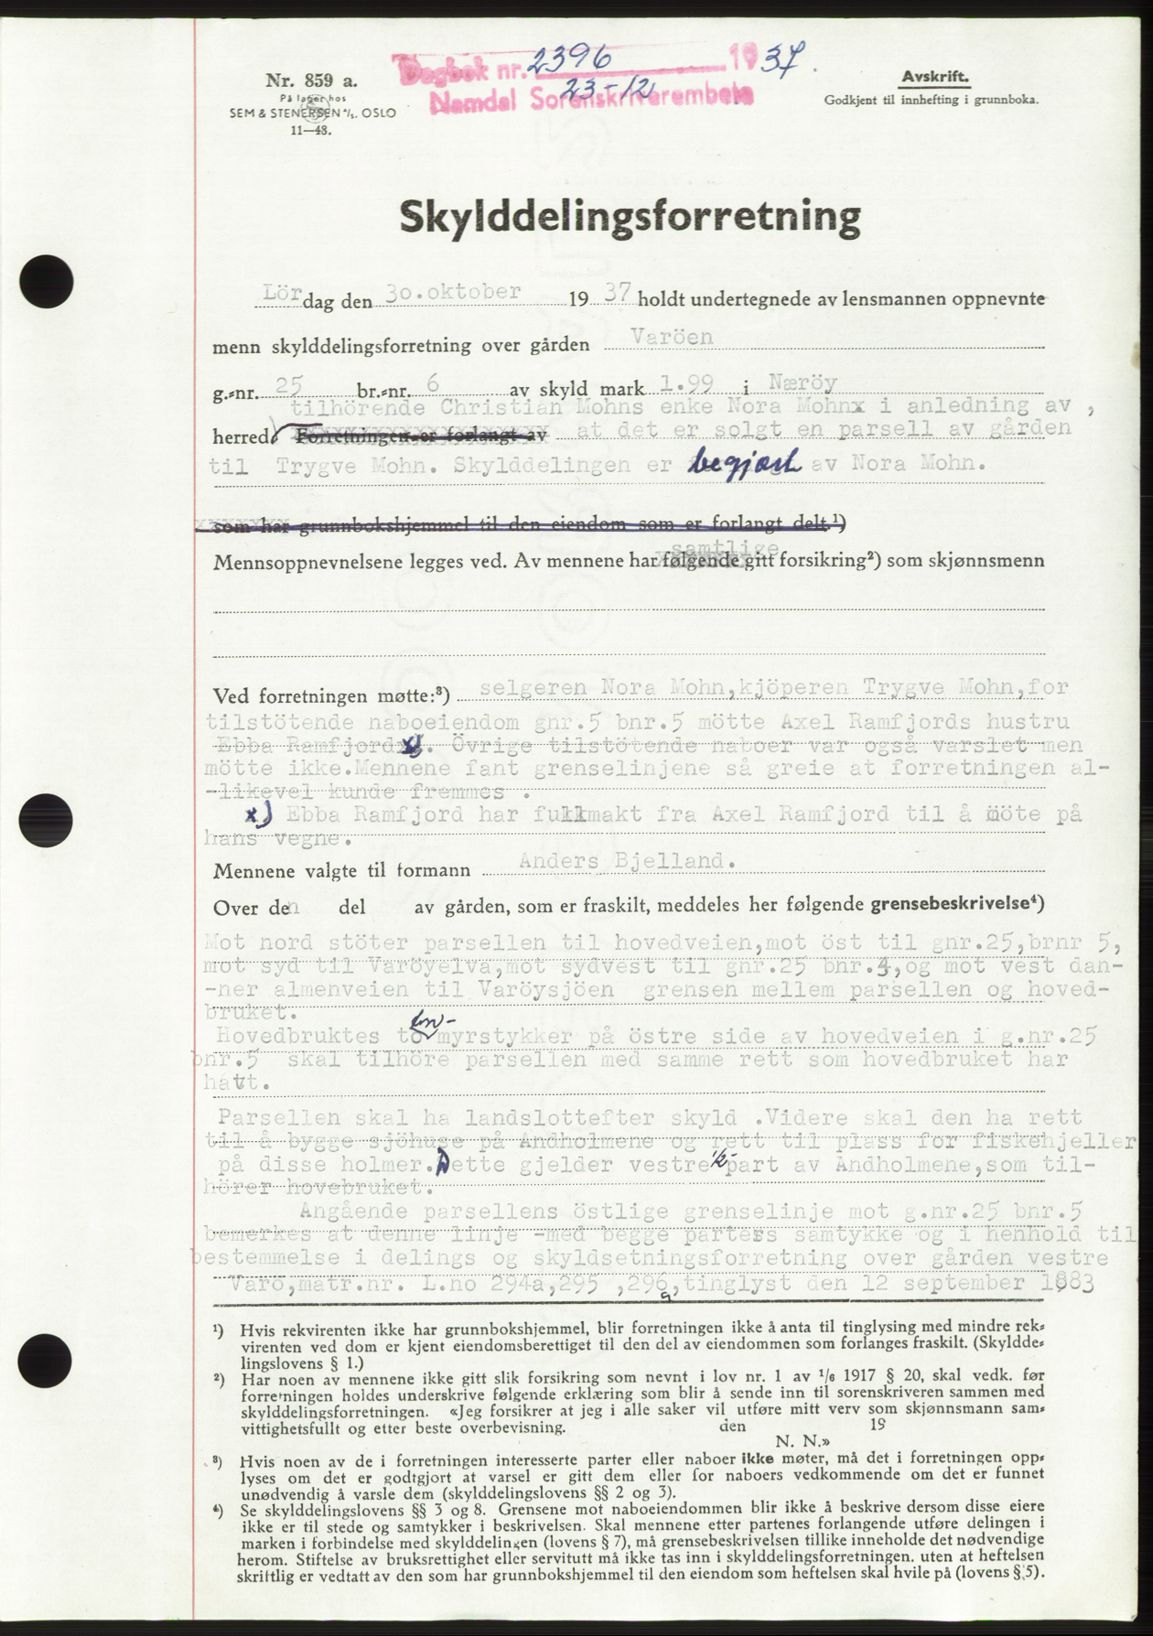 Nr. 859 a.
På lager hos
SEM & STENERSEN A/S. OSLO
11—48.
Dagbok nr. 2396 1937.
23-12
Namdal Sorenskriverembete
Avskrift.
Godkjent til innhefting i grunnboka.
Skylddelingsforretning
Lördag den 30.oktober 1937 holdt undertegnede av lensmannen oppnevnte
menn skylddelingsforretning over gården Varöen
g.-nr. 25 br.-nr. 6 av skyld mark 1.99 i Næröy
tilhörende Christian Mohns enke Nora Mohnx i anledning av ,
herred. Forretningen er forlangt av at det er solgt en parsell av gården
til Trygve Mohn. Skylddelingen er begjært av Nora Mohn.
som har grunnbokshjemmel til den eiendom som er forlangt delt.¹)
samtlige
Mennsoppnevnelsene legges ved. Av mennene har følgende gitt forsikring²) som skjønnsmenn
Ved forretningen møtte:³) selgeren Nora Mohn,kjöperen Trygve Mohn,for
tilstötende naboeiendom gnr.5 bnr.5 mötte Axel Ramfjords hustru
Ebba Ramfjord x). Övrige tilstötende naboer var også varslet men
mötte ikke.Mennene fant grenselinjene så greie at forretningen al-
-likevel kunde fremmes .
x) Ebba Ramfjord har fullmakt fra Axel Ramfjord til å möte på
hans vegne.
Mennene valgte til formann Anders Bjelland.
Over den del av gården, som er fraskilt, meddeles her følgende grensebeskrivelse⁴)
Mot nord stöter parsellen til hovedveien,mot öst til gnr.25,brnr 5,
mot syd til Varöyelva,mot sydvest til gnr.25 bnr.4,og mot vest dan-
-ner almenveien til Varöysjöen grensen mellem parsellen og hoved-
bruket.
Hovedbruktes to myrstykker på östre side av hovedveien i g.nr.25
bnr.5 skal tilhöre parsellen med samme rett som hovedbruket har
hatt.
Parsellen skal ha landslottefter skyld .Videre skal den ha rett
til å bygge sjöhuse på Andholmene og rett til plass for fiskehjeller
på disse holmer.Dette gjelder vestre ½-part av Andholmene,som til-
hörer hovebruket.
Angående parsellens östlige grenselinje mot g.nr.25 bnr.5
bemerkes at denne linje -med begge parters samtykke og i henhold til
bestemmelse i delings og skyldsetningsforretning over gården vestre
Varö,matr.nr. L.no 294a,295 ,296a,tinglyst den 12 september 1883
¹) Hvis rekvirenten ikke har grunnbokshjemmel, blir forretningen ikke å anta til tinglysing med mindre rek-
virenten ved dom er kjent eiendomsberettiget til den del av eiendommen som forlanges fraskilt. (Skyldde-
lingslovens § 1.)
²) Har noen av mennene ikke gitt slik forsikring som nevnt i lov nr. 1 av 1/6 1917 § 20, skal vedk. før
forretningen holdes underskrive følgende erklæring som blir å sende inn til sorenskriveren sammen med
skylddelingsforretningen. «Jeg forsikrer at jeg i alle saker vil utføre mitt verv som skjønnsmann sam-
vittighetsfullt og etter beste overbevisning. den 19
N. N.»
³) Hvis noen av de i forretningen interesserte parter eller naboer ikke møter, må det i forretningen opp-
lyses om det er godtgjort at varsel er gitt dem eller for naboers vedkommende om det er funnet
unødvendig å varsle dem (skylddelingslovens §§ 2 og 3).
⁴) Se skylddelingslovens §§ 3 og 8. Grensene mot naboeiendommen blir ikke å beskrive dersom disse eiere
ikke er til stede og samtykker i beskrivelsen. Skal mennene etter partenes forlangende utføre delingen i
marken i forbindelse med skylddelingen (lovens § 7), må grensebeskrivelsen tillike inneholde det nødvendige
herom. Stiftelse av bruksrettighet eller servitutt må ikke tas inn i skylddelingsforretningen. uten at heftelsen
skriftlig er vedtatt av den som har grunnbokshjemmel til den eiendom som heftelsen skal hvile på (lovens § 5).